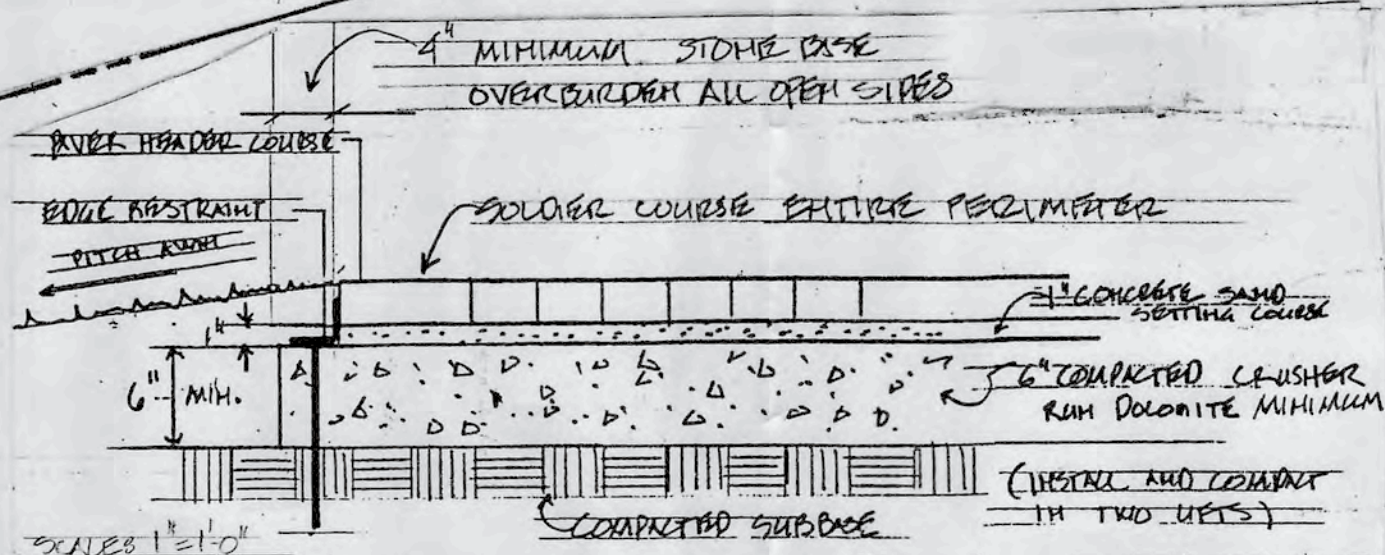 4" MINIMUM STONE BASE
OVERBURDEN ALL OPEN SIDES
PAVER HEADER COURSE
EDGE RESTRAINT
SOLDIER COURSE ENTIRE PERIMETER
PITCH AWAY
1"
1" CONCRETE SAND
SETTING COURSE
6" MIN.
6" COMPACTED CRUSHER
RUN DOLOMITE MINIMUM
(INSTALL AND COMPACT
IN TWO LIFTS)
COMPACTED SUBBASE
SCALE: 1"=1'-0"